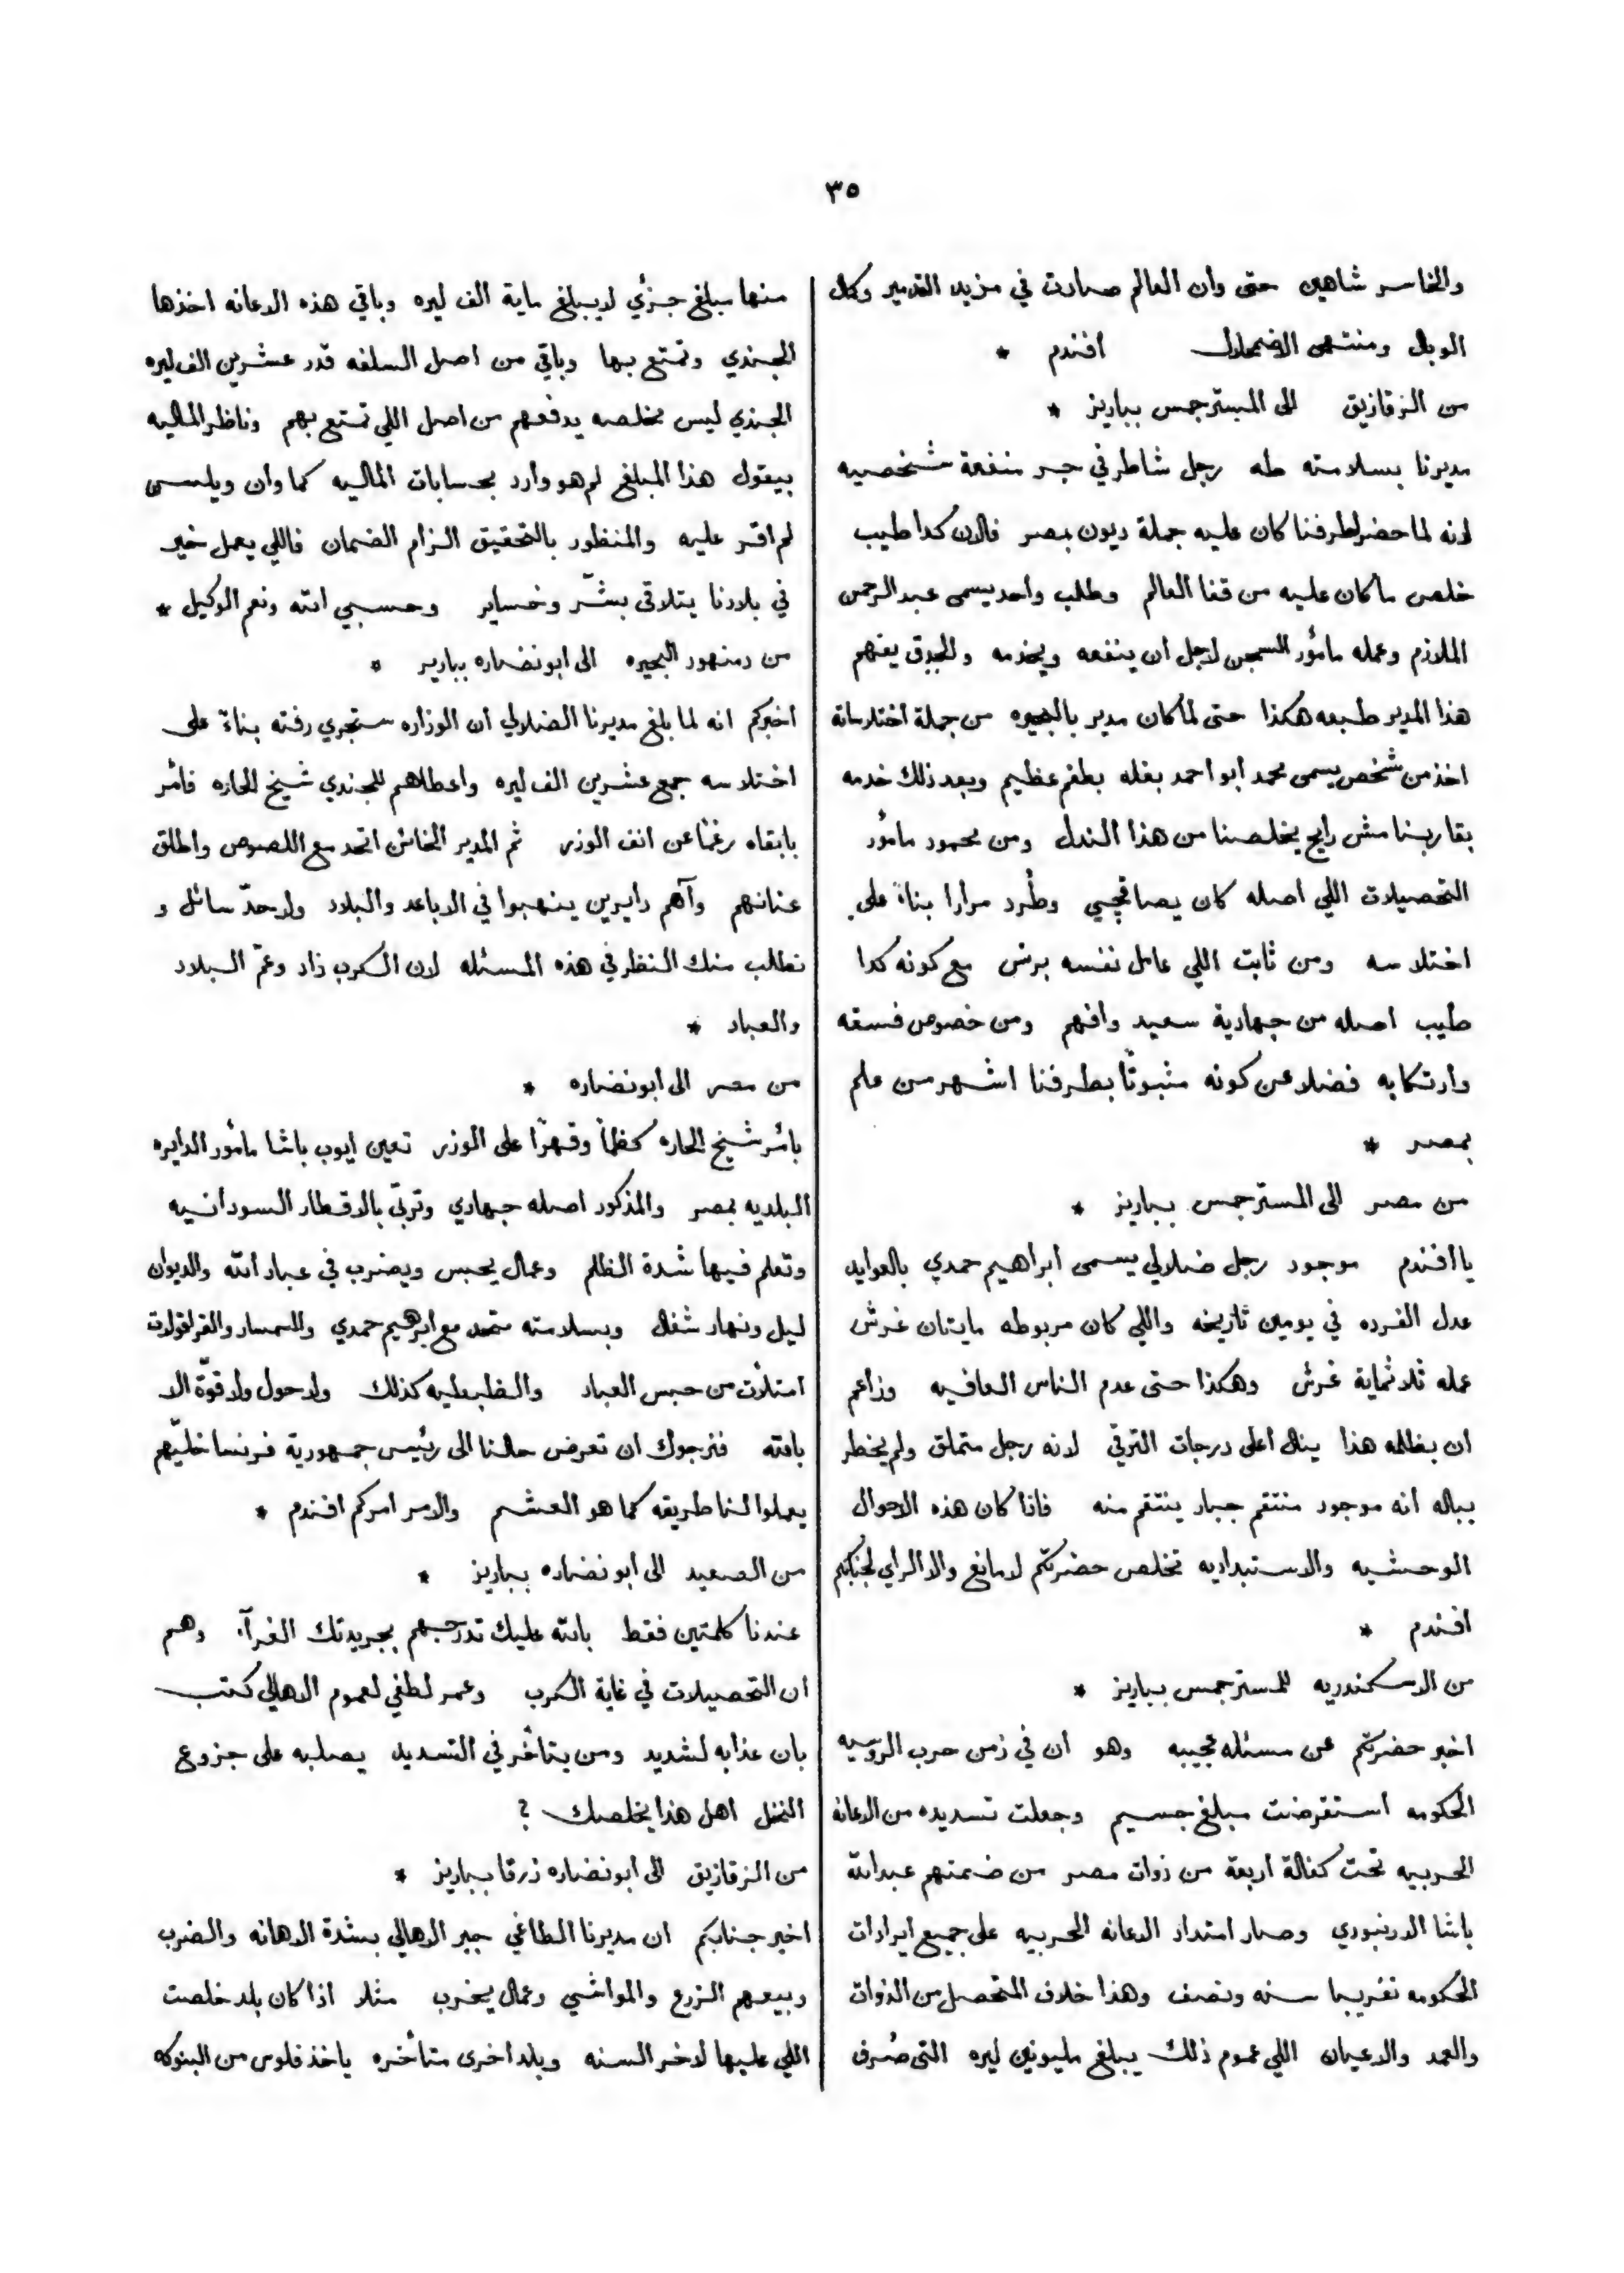 ٣٥
والخاسر شاهين حتى وان العالم صارت في مزيد التدمير وكمال
الوبال ومنتهى الاضمحلال افندم *
من الزقازيق الى المستر جمس بباريز *
مديرنا بسلامته طه رجل شاطر في جر منفعة شخصيه
لانه لما حضر لطرفنا كان عليه جملة ديون بمصر فالان كدا طيب
خلص ما كان عليه من قفا العالم وطلب واحد يسمى عبد الرحمن
الملازم وعمله مأمور السجن لاجل ان ينفعه ويخدمه والحدق يفهم
هذا المدير طبعه هكذا حتى لما كان مدير بالبحيره من جملة اختلاساته
اخذ من شخص يسمى محمد ابو احمد بغله بطقم عظيم وبعد ذلك خدمه
بقا ربنا مش رايح يخلصنا من هذا الندل ومن محمود مامور
التحصيلات اللي اصله كان يصاقجي وطُرد مرارا بناءً على
اختلاسه ومن ثابت اللي عامل نفسه برنس مع كونه كدا
طيب اصله من جهادية سعيد وافهم ومن خصوص فسقه
وارتكابه فضلا عن كونه مثبوتًا بطرفنا اشهر من علم
بمصر *
من مصر الى المستر جمس بباريز *
يا افندم موجود رجل ضلالي يسمى ابراهيم حمدي بالعوايد
عدل الفرده في يومين تاريخه واللي كان مربوطه مايتان غرش
عمله ثلاثماية غرش وهكذا حتى عدم الناس العافيه وزاعم
ان بظلمه هذا ينال اعلى درجات الترقي لانه رجل متملق ولم يخطر
بباله انه موجود منتقم جبار ينتقم منه فاذا كان هذه الاحوال
الوحشيه والاستبداديه تخلص حضرتكم لا مانع والا الراي لجنابكم
افندم *
من الاسكندريه للمستر جمس بباريز *
اخبر حضرتكم عن مسئله عجيبه وهو ان في زمن حرب الروسيه
الحكومه استقرضت مبلغ جسيم وجعلت تسديده من الاعانه
الحربيه تحت كفالة اربعة من ذوات مصر من ضمنهم عبد الله
باشا الدرنبوري وصار امتداد الاعانه الحربيه على جميع ايرادات
الحكومه تقريبا سنه ونصف وهذا خلاف المتحصل من الذوات
والعمد والاعيان اللي عموم ذلك يبلغ مليونين ليره التى صُرف
منها مبلغ جزئي لا يبلغ ماية الف ليره وباقي هذه الاعانه اخذها
الجندي وتمتع بها وباقي من اصل السلفه قدر عشرين الف ليره
الجندي ليس مخلصه يدفعهم من اصل اللي تمتع بهم وناظر الماليه
بيقول هذا المبلغ لم هو وارد بحسابات الماليه كما وان ويلسى
لم اقر عليه والمنظور بالتحقيق الزام الضمان فاللي يعمل خير
في بلادنا يتلاقى بشرّ وخساير وحسبي الله ونعم الوكيل *
من دمنهور البحيره الى ابو نضاره بباريز *
اخبركم انه لما بلغ مديرنا الضلالي ان الوزاره ستجري رفته بناءً على
اختلاسه جمع عشرين الف ليره واعطاهم للجندي شيخ الحاره فأمر
بابقاه رغمًا عن انف الوزر ثم المدير الخائن اتحد مع اللصوص واطلق
عنانهم وآهم دايرين ينهبوا في الاباعد والبلاد ولا حدّ سائل و
نطلب منك النظر في هذه المسئله لان الكرب زاد وعمّ البلاد
والعباد *
من مصر الى ابو نضاره *
بأمر شيخ الحاره كظمًا وقهرًا على الوزر تعين ايوب باشا مأمور الدايره
البلديه بمصر والمذكور اصله جهادي وتربّي بالاقطار السودانيه
وتعلم فيها شدة الظلم وعمال يحبس ويضرب في عباد الله والديوان
ليل ونهار شغال وبسلامته متحد مع ابرهيم حمدي والسمسار والقرلقولات
امتلأت من حبس العباد والضابطيه كذلك ولا حول ولا قوّة الا
بالله فنرجوك ان تعرض حالنا الى رئيس جمهورية فرنسا خليّهم
يعملوا لنا طريقه كما هو العشم والامر امركم افندم *
من الصعيد الى ابو نضاره بباريز *
عندنا كلمتين فقط بالله عليك تدرجهم بجريدتك الغرآ، وهم
ان التحصيلات في غاية الكرب وعمر لطفي لعموم الاهالي كتب
بان عذابه لشديد ومن يتاخر في التسديد يصلبه على جزوع
النخل اهل هذا يخلصك ؟
من الزقازيق الى ابو نضاره زرقا بباريز *
اخبر جنابكم ان مديرنا الطاغي جبر الاهالي بشدة الاهانه والضرب
وبيعهم الزرع والمواشي وعمال يخرب مثلا اذا كان بلد خلصت
اللي عليها لاخر السنه وبلد اخرى متأخره ياخذ فلوس من البنوكه